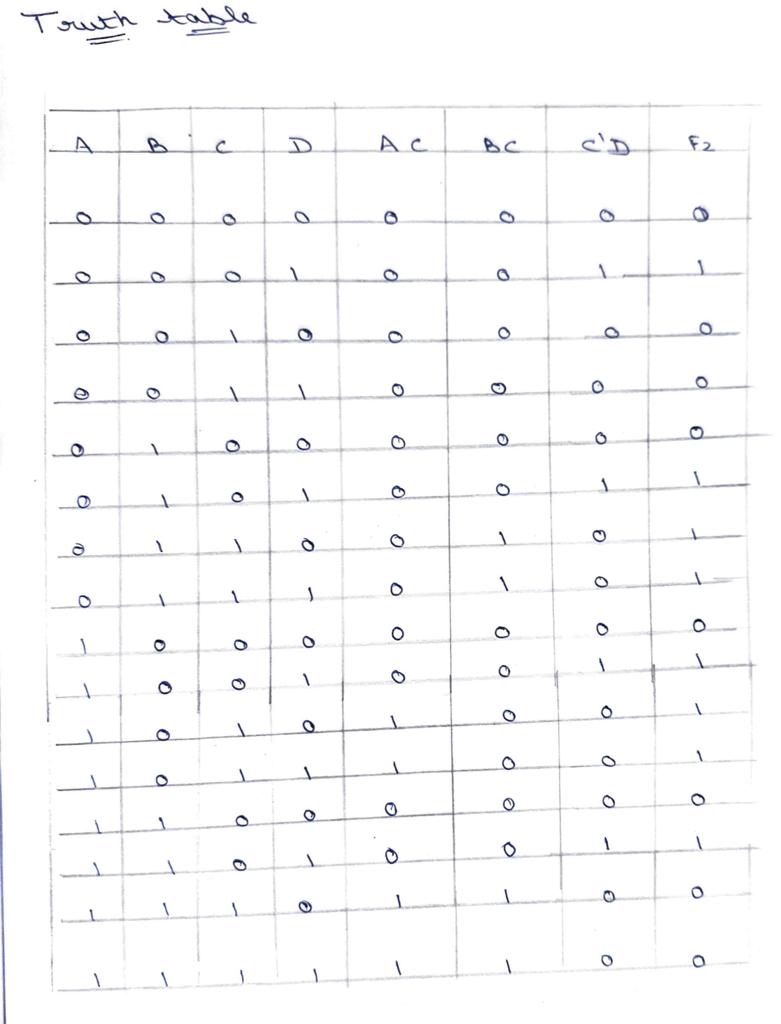 Truth table
A B C D AC BC C'D F2
0 0 0 0 0 0 0 0
0 0 0 1 0 0 1 1
0 0 1 0 0 0 0 0
0 0 1 1 0 0 0 0
0 1 0 0 0 0 0 0
0 1 0 1 0 0 1 1
0 1 1 0 0 1 0 1
0 1 1 1 0 1 0 1
1 0 0 0 0 0 0 0
1 0 0 1 0 0 1 1
1 0 1 0 1 0 0 1
1 0 1 1 1 0 0 1
1 1 0 0 0 0 0 0
1 1 0 1 0 0 1 1
1 1 1 0 1 1 0 0
1 1 1 1 1 1 0 0